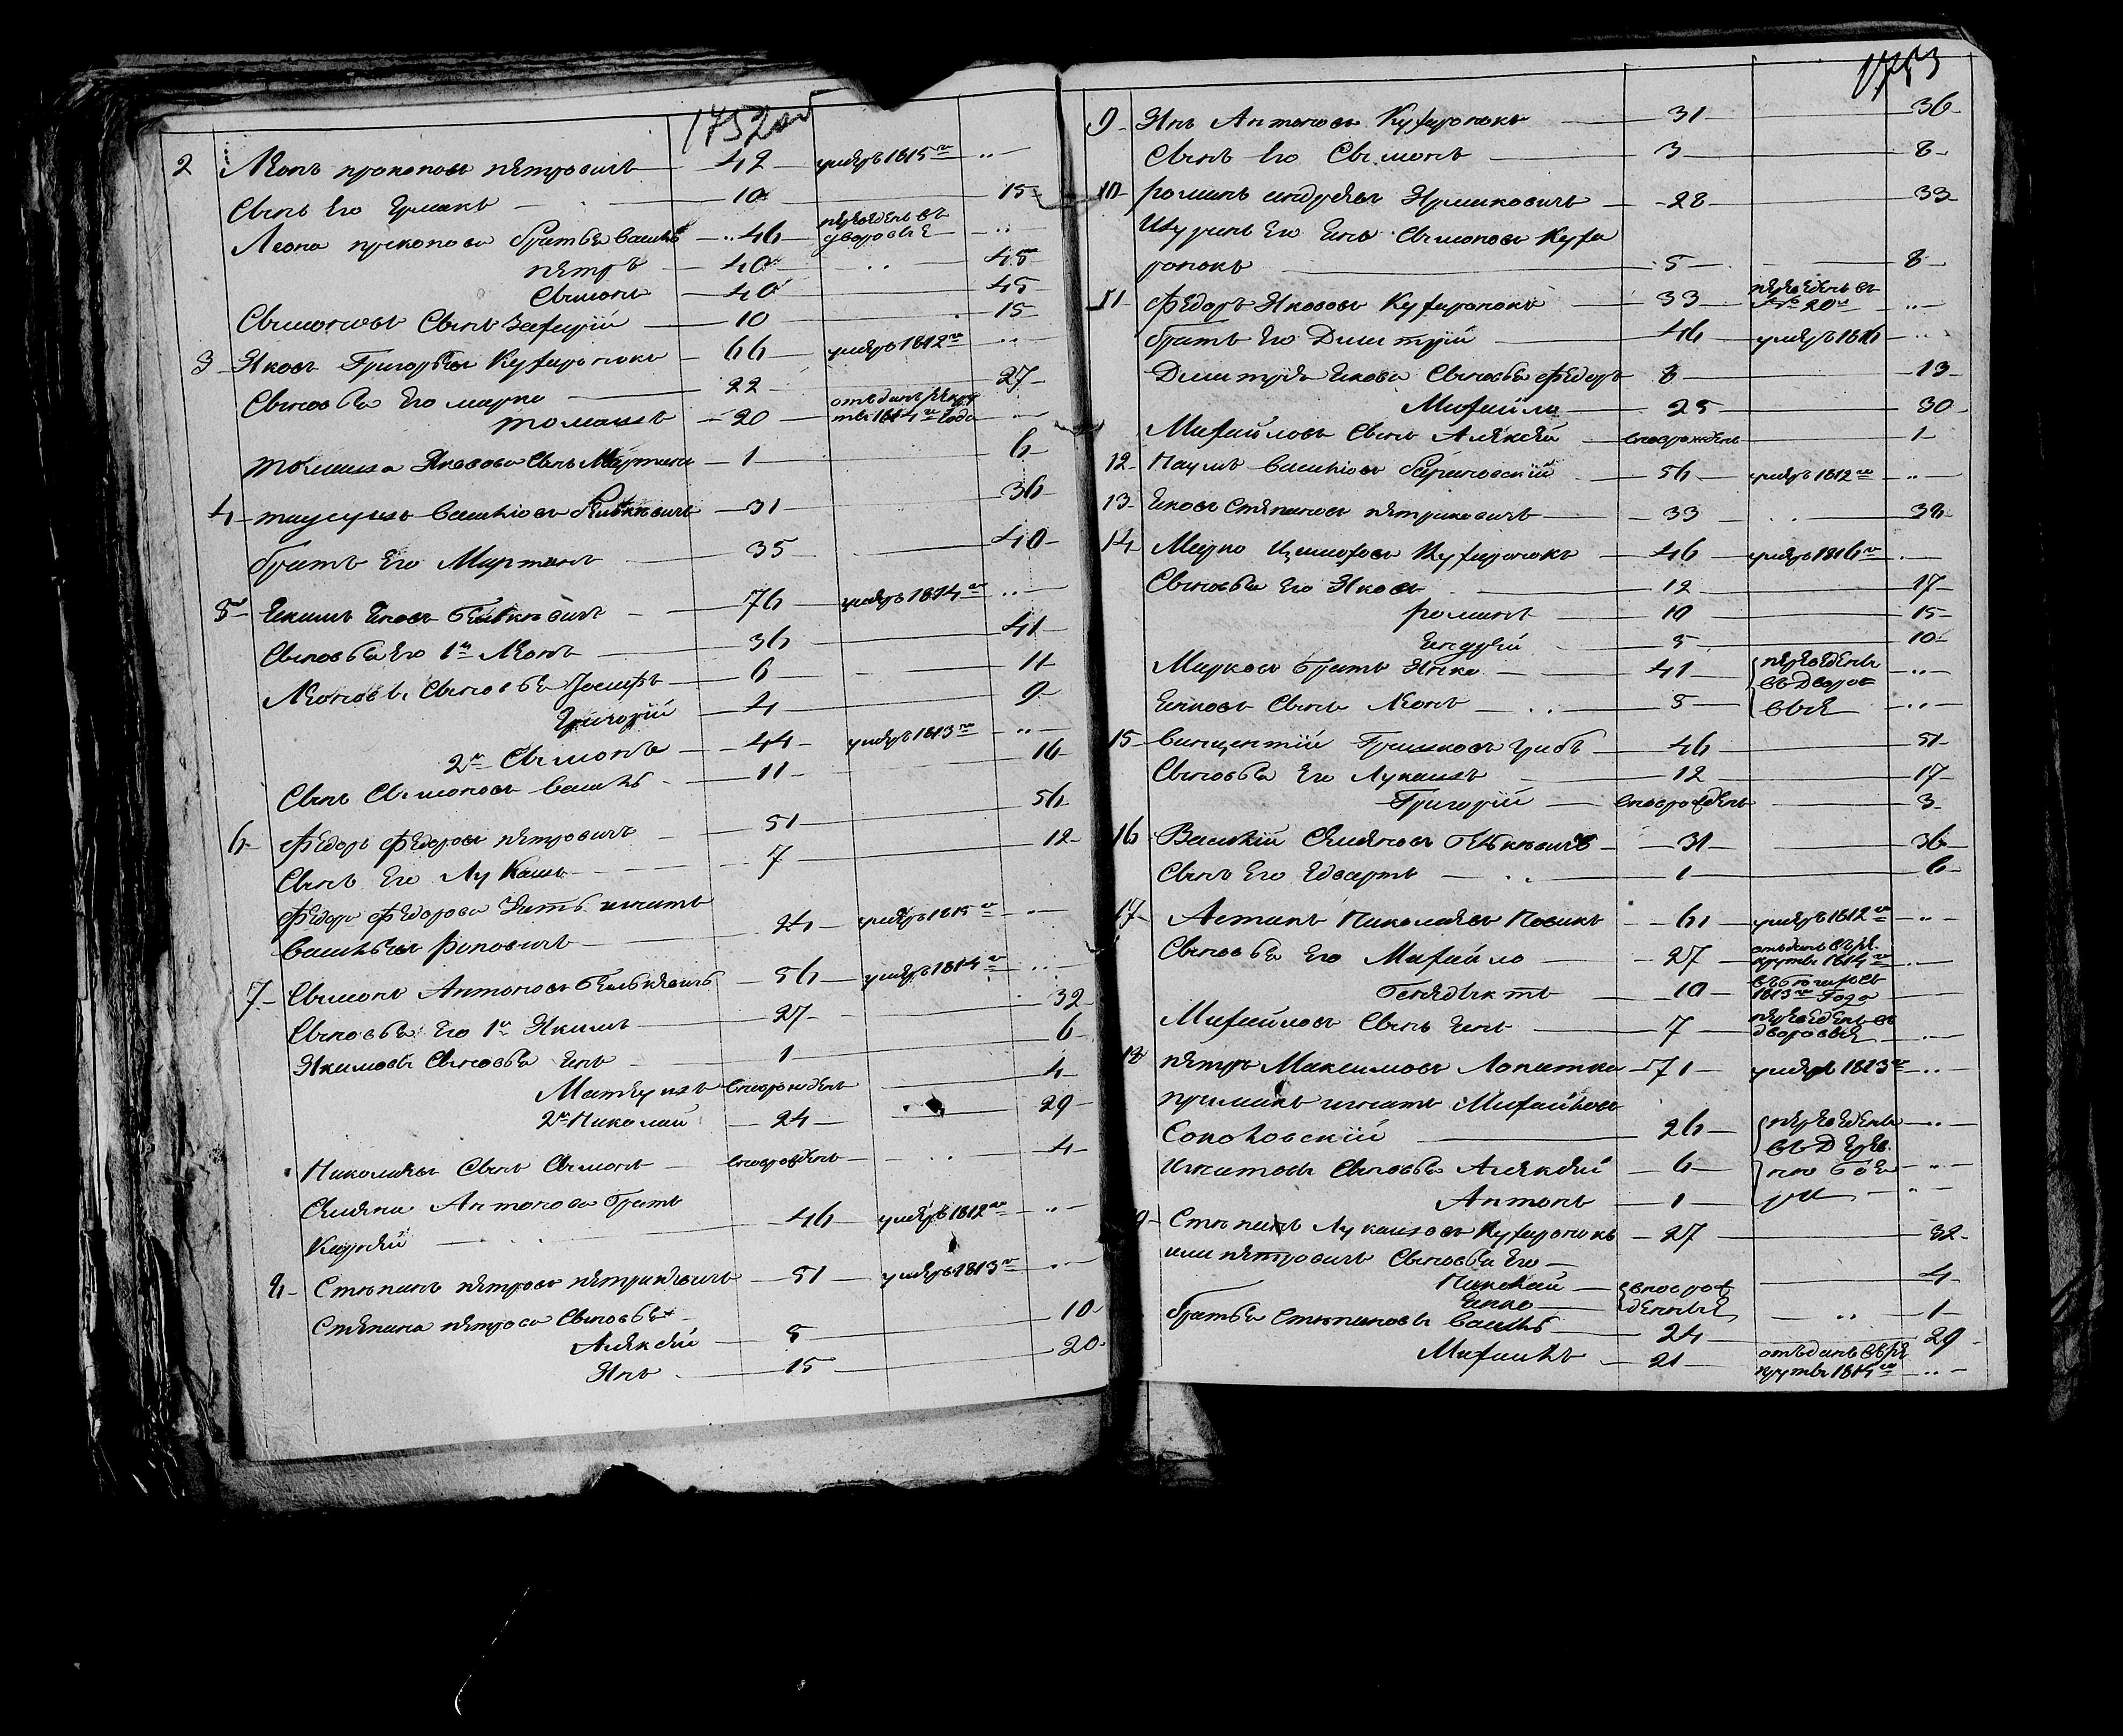 1752 об
2 Леонъ прокоповъ петровичъ 42 умеръ 1815го
Сынъ Его Ермакъ 10 15
Леона прокопова братья васил 46 переведенъ въ дворовые
петръ 40 45
Сымонъ 40 45
Сымоновъ Сынъ захарiй 10 15
3 Яковъ Григорьевъ Кухаронокъ 66 умеръ 1812го
Сыновья Его марко 22 27
томашъ 20 отъданъ рекрутты 1814го Года
томаша Якова Сынъ Мартинъ 1 6
4 матеушъ василiовъ 31 36
братъ Его Мартинъ 35 40
5 Екимъ Яковъ 76 умеръ 1814го
Сыновья Его 1й Леонъ 36 41
Леоновы Сыновья Iосифъ 6 11
Григорiй 4 9
2й Сымонъ 44 умеръ 1813го
Сынъ Сымоновъ василь 11 16
6 Федоръ Федоровъ петровичъ 51 56
Сынъ Его Лукашъ 7 12
Федора Федорова Зять игнатъ
васильевъ 24 умеръ 1815го
7 Сымонъ Антоновъ 56 умеръ 1814го
Сыновья Его 1й Якимъ 27 32
Якимовы Сыновья Янъ 1 6
Матеушъ вноврожденъ 4
2й Николай 24 29
Николаевъ Сынъ Сымонъ вноврожденъ 4
Семена Антонова братъ
Кадрей 46 умеръ 1812го
8 Степанъ петровъ петрикевичъ 51 умеръ 1813го
Степана петрова Сыновья
Алексей 5 10
Янъ 15 20
1753
9 Янъ Антоновъ Кухаронокъ 31 36
Сынъ Его Сымонъ 3 8
10 романъ андреевъ Ярмаковичъ 28 33
Шуринъ Его Янъ Сымоновъ Куха
ронокъ 5 8
11 Федоръ Яковъ Кухаронокъ 33 переведенъ въ № 20й
братъ Его Дмитрiй 46 умеръ 1816
Дмитрiя Якова Сыновья Федоръ 8 13
Михайла 25 30
Михайловъ Сынъ Алексей вноврожденъ 1
12 Наумъ василiовъ 56 умеръ 1812го
13 Яковъ Степановъ петриковичъ 33 38
14 Марко Цимоховъ Кухаронокъ 46 умеръ 1816го
Сыновья Его Яковъ 12 17
романъ 10 15
Андрей 5 10
Марковъ братъ Янко 41 переведены
въ дворо
Янковъ Сынъ Леонъ 5 выя
15 Винцентiй Гришковъ грибъ 46 51
Сыновья Его Лукашъ 12 17
Григорiй вноврожденъ 3
16 Василiй Семеновъ 31 36
Сынъ Его Едвартъ 1 6
17 Астапъ Николаевъ Новикъ 61 умеръ 1812го
Сыновья Его Михайло 27 отъданъ въ рекруты 1814го
Бенедыктъ 10 въ бегахъ съ 1813го Года
Михайловъ Сынъ Янъ 7 переведенъ въ дворовые
18 петръ Максимовъ Лопатка 71 умеръ 1813го
примакъ игнатъ Михайловъ
Соколовскiй 26 переведены
въ Дерев
Игнатовы Сыновья Алексей 6 ню
Антонъ 1
Степанъ Лукашовъ Кухаронокъ 27 32
или петровичъ Сыновья Его
Николай вноврож 4
Янко денные 1
братья Степановы василь 24 29
Михаилъ 21 отъданъ въ рекруты 1814го